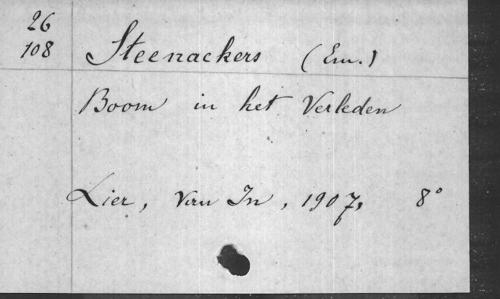 26
108
Steenackers (Em.)
Boom in het Verleden
Lier, Van In, 1907, 8°